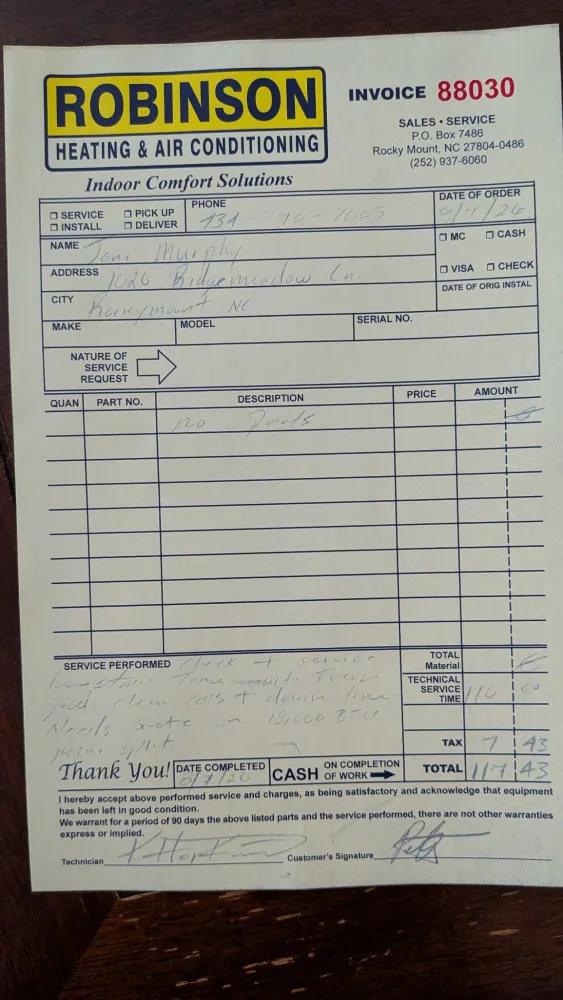 ROBINSON
HEATING & AIR CONDITIONING
Indoor Comfort Solutions
INVOICE 88030
SALES • SERVICE
P.O. Box 7486
Rocky Mount, NC 27804-0486
(252) 937-6060
☐ SERVICE ☐ PICK UP
☐ INSTALL ☐ DELIVER
PHONE
DATE OF ORDER
NAME Toni Murphy
☐ MC ☐ CASH
ADDRESS 1020 Ridgemeadow Ln.
☐ VISA ☐ CHECK
CITY Rockymount NC
DATE OF ORIG INSTAL
MAKE MODEL SERIAL NO.
NATURE OF
SERVICE
REQUEST
QUAN PART NO. DESCRIPTION PRICE AMOUNT
no Parts
SERVICE PERFORMED check + service
good. clean coils + drain line.
Needs Quote on 18,000 BTU
mini split
TOTAL
Material
TECHNICAL
SERVICE
TIME 110 00
TAX 7 43
Thank You! DATE COMPLETED
CASH ON COMPLETION
OF WORK
TOTAL 117 43
I hereby accept above performed service and charges, as being satisfactory and acknowledge that equipment
has been left in good condition.
We warrant for a period of 90 days the above listed parts and the service performed, there are not other warranties
express or implied.
Technician Customer's Signature